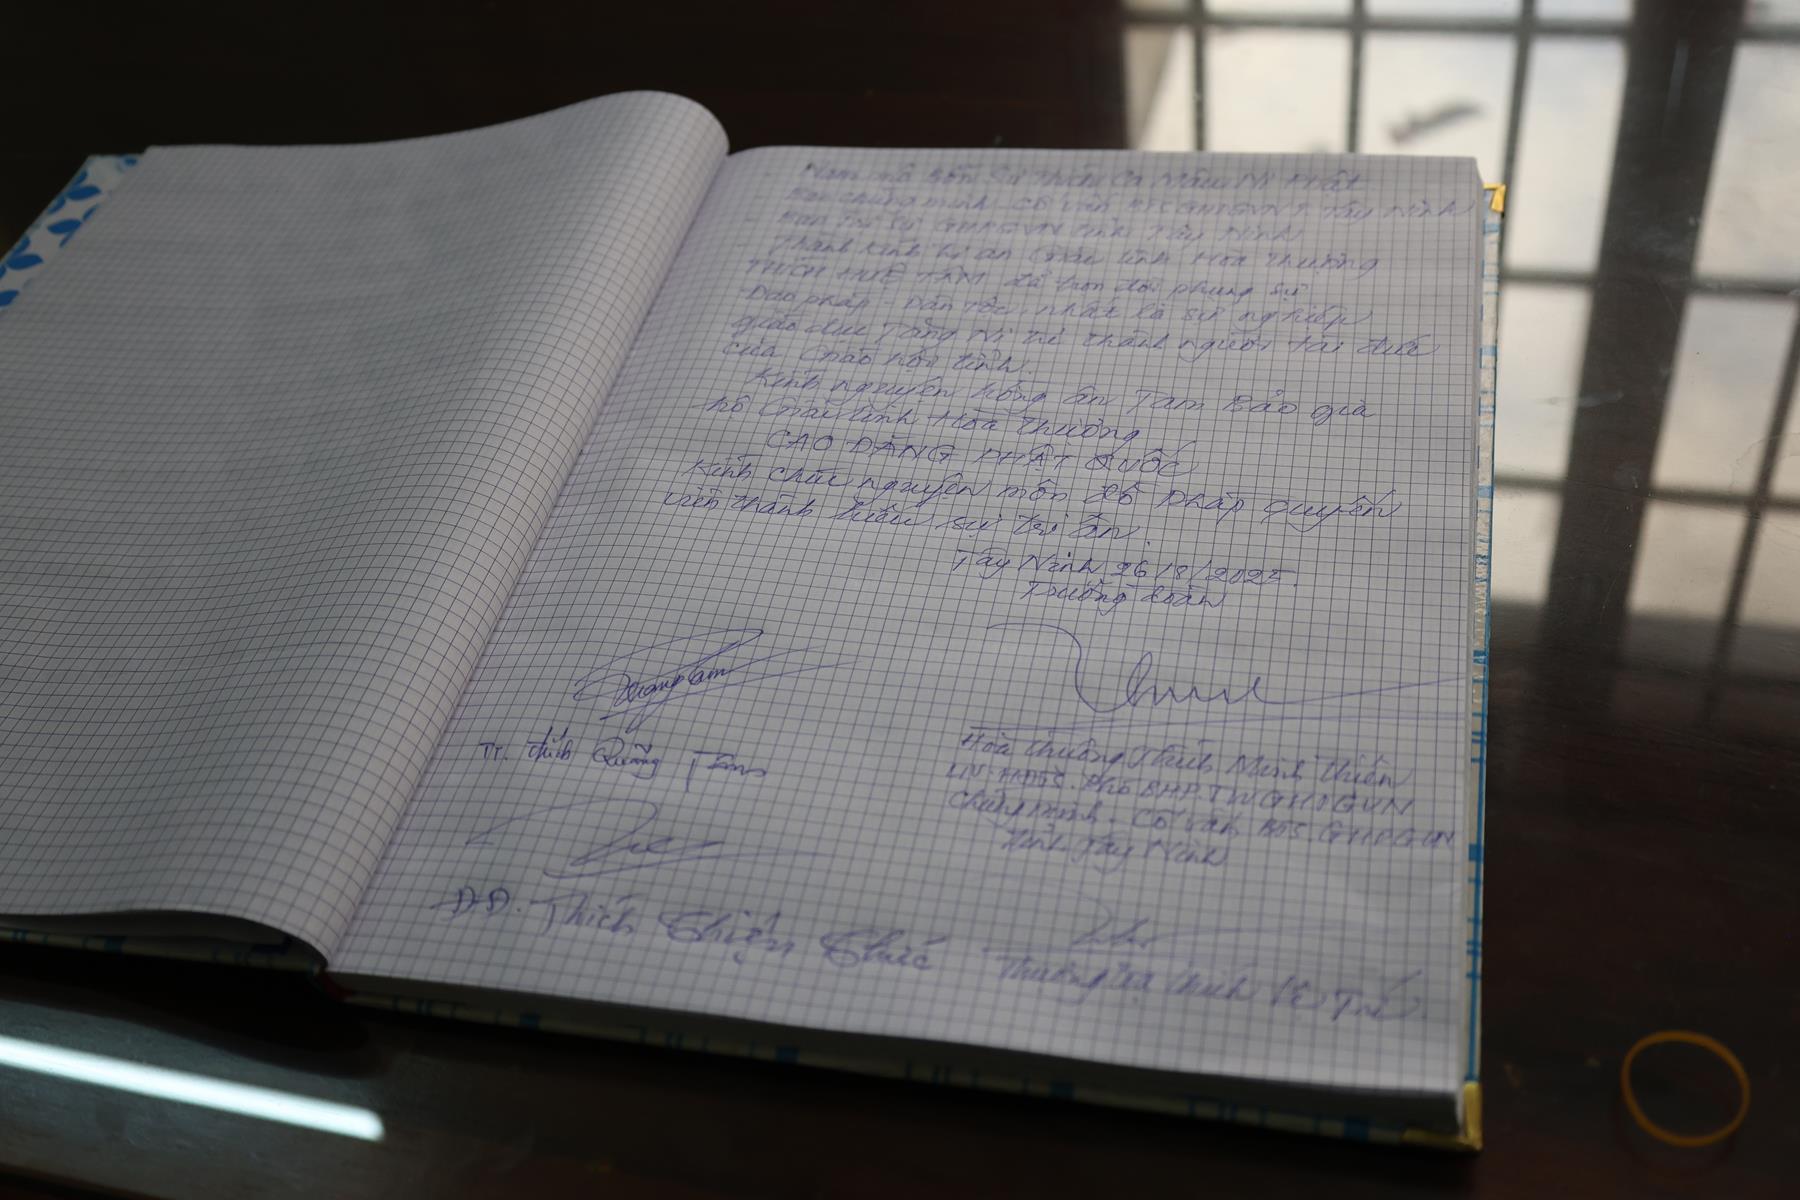 Nam mô Bổn Sư Thích Ca Mâu Ni Phật
Ban chứng minh - Cố vấn BTS GHPGVN T. Tây Ninh
- Ban Trị Sự GHPGVN tỉnh Tây Ninh
Thành kính tri ân Giác linh Hòa thượng
THÍCH HUỆ TÂM đã trọn đời phụng sự
Đạo pháp - Dân tộc, nhất là sự nghiệp
giáo dục Tăng Ni trẻ thành người tài đức
của Giáo hội tỉnh.
Kính nguyện hồng ân Tam Bảo gia
hộ Giác linh Hòa thượng
CAO ĐĂNG PHẬT QUỐC
Kính chúc nguyện môn đồ pháp quyến
viên thành hiếu sự tri ân.
Tây Ninh 26/8/2025.
Trưởng đoàn
Quangtam
TT. Thích Quảng Tâm
Hòa thượng Thích Minh Thiện
UV HĐTS. Phó BHP.TW GHPGVN
Chứng minh - Cố vấn BTS. GHPGVN
tỉnh Tây Ninh
ĐĐ. Thích Thiện Thức
Thượng tọa Thích